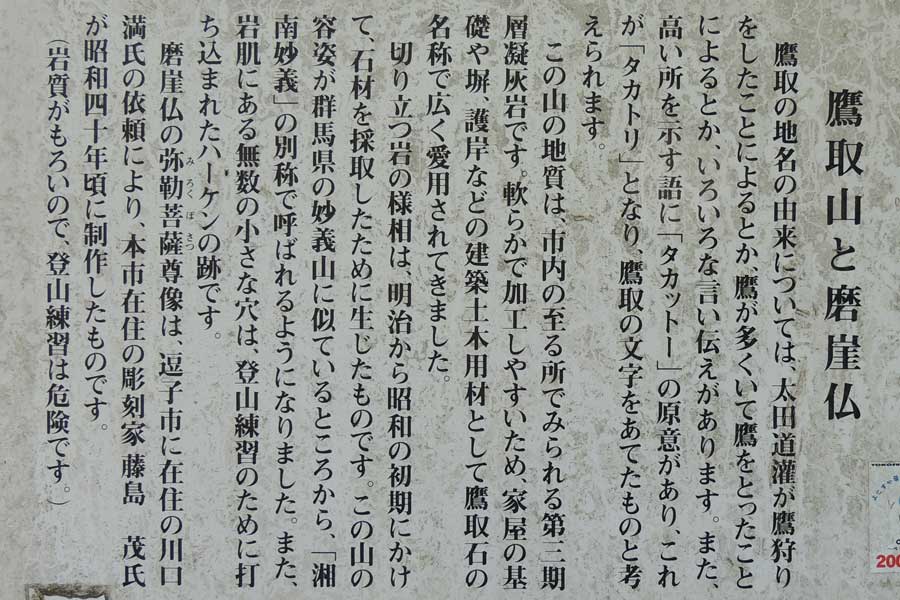 鷹取山と磨崖仏
鷹取の地名の由来については、太田道灌が鷹狩り
をしたことによるとか、鷹が多くいて鷹をとったこと
によるとか、いろいろな言い伝えがあります。また、
高い所を示す語に「タカットー」の原意があり、これ
が「タカトリ」となり、鷹取の文字をあてたものと考
えられます。
この山の地質は、市内の至る所でみられる第三期
層凝灰岩です。軟らかで加工しやすいため、家屋の基
礎や塀、護岸などの建築土木用材として鷹取石の
名称で広く愛用されてきました。
切り立つ岩の様相は、明治から昭和の初期にかけ
て、石材を採取したために生じたものです。この山の
容姿が群馬県の妙義山に似ているところから、「湘
南妙義」の別称で呼ばれるようになりました。また、
岩肌にある無数の小さな穴は、登山練習のために打
ち込まれたハーケンの跡です。
磨崖仏の弥勒菩薩尊像は、逗子市に在住の川口
みろくぼさつ
満氏の依頼により、本市在住の彫刻家 藤島 茂氏
が昭和四十年頃に制作したものです。
(岩質がもろいので、登山練習は危険です。)
200